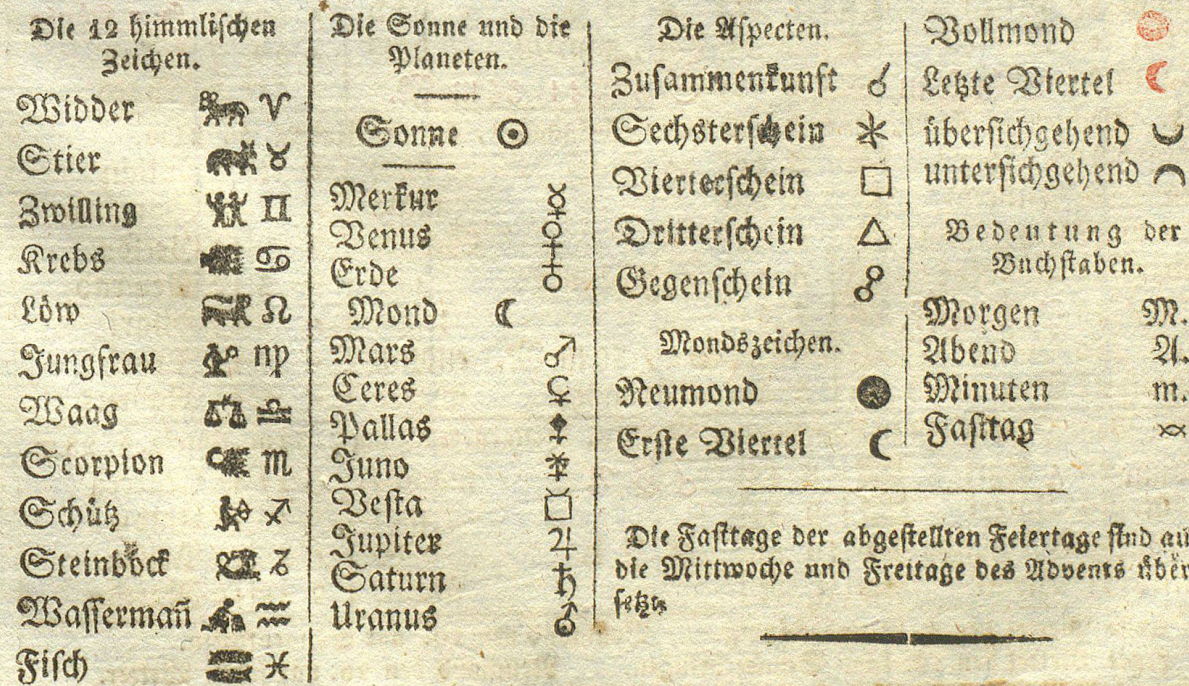 Die 12 himmlischen
Zeichen.
Widder ♈
Stier ♉
Zwilling ♊
Krebs ♋
Löw ♌
Jungfrau ♍
Waag ♎
Scorpion ♏
Schütz ♐
Steinböck ♑
Wassermañ ♒
Fisch ♓
Die Sonne und die
Planeten.
Sonne ☉
Merkur ☿
Venus ♀
Erde ♁
Mond ☾
Mars ♂
Ceres ⚳
Pallas ⚴
Juno ⚵
Vesta ⚶
Jupiter ♃
Saturn ♄
Uranus ⛢
Die Aspecten.
Zusammenkunft ☌
Sechsterschein ⚹
Vierterschein □
Dritterschein △
Gegenschein ☍
Mondszeichen.
Neumond ●
Erste Viertel ☾
Vollmond
Letzte Viertel ☾
übersichgehend ◡
untersichgehend ◠
Bedeutung der
Buchstaben.
Morgen M.
Abend A.
Minuten m.
Fasttag
Die Fasttage der abgestellten Feiertage sind au
die Mittwoche und Freitage des Advents über
setzt.